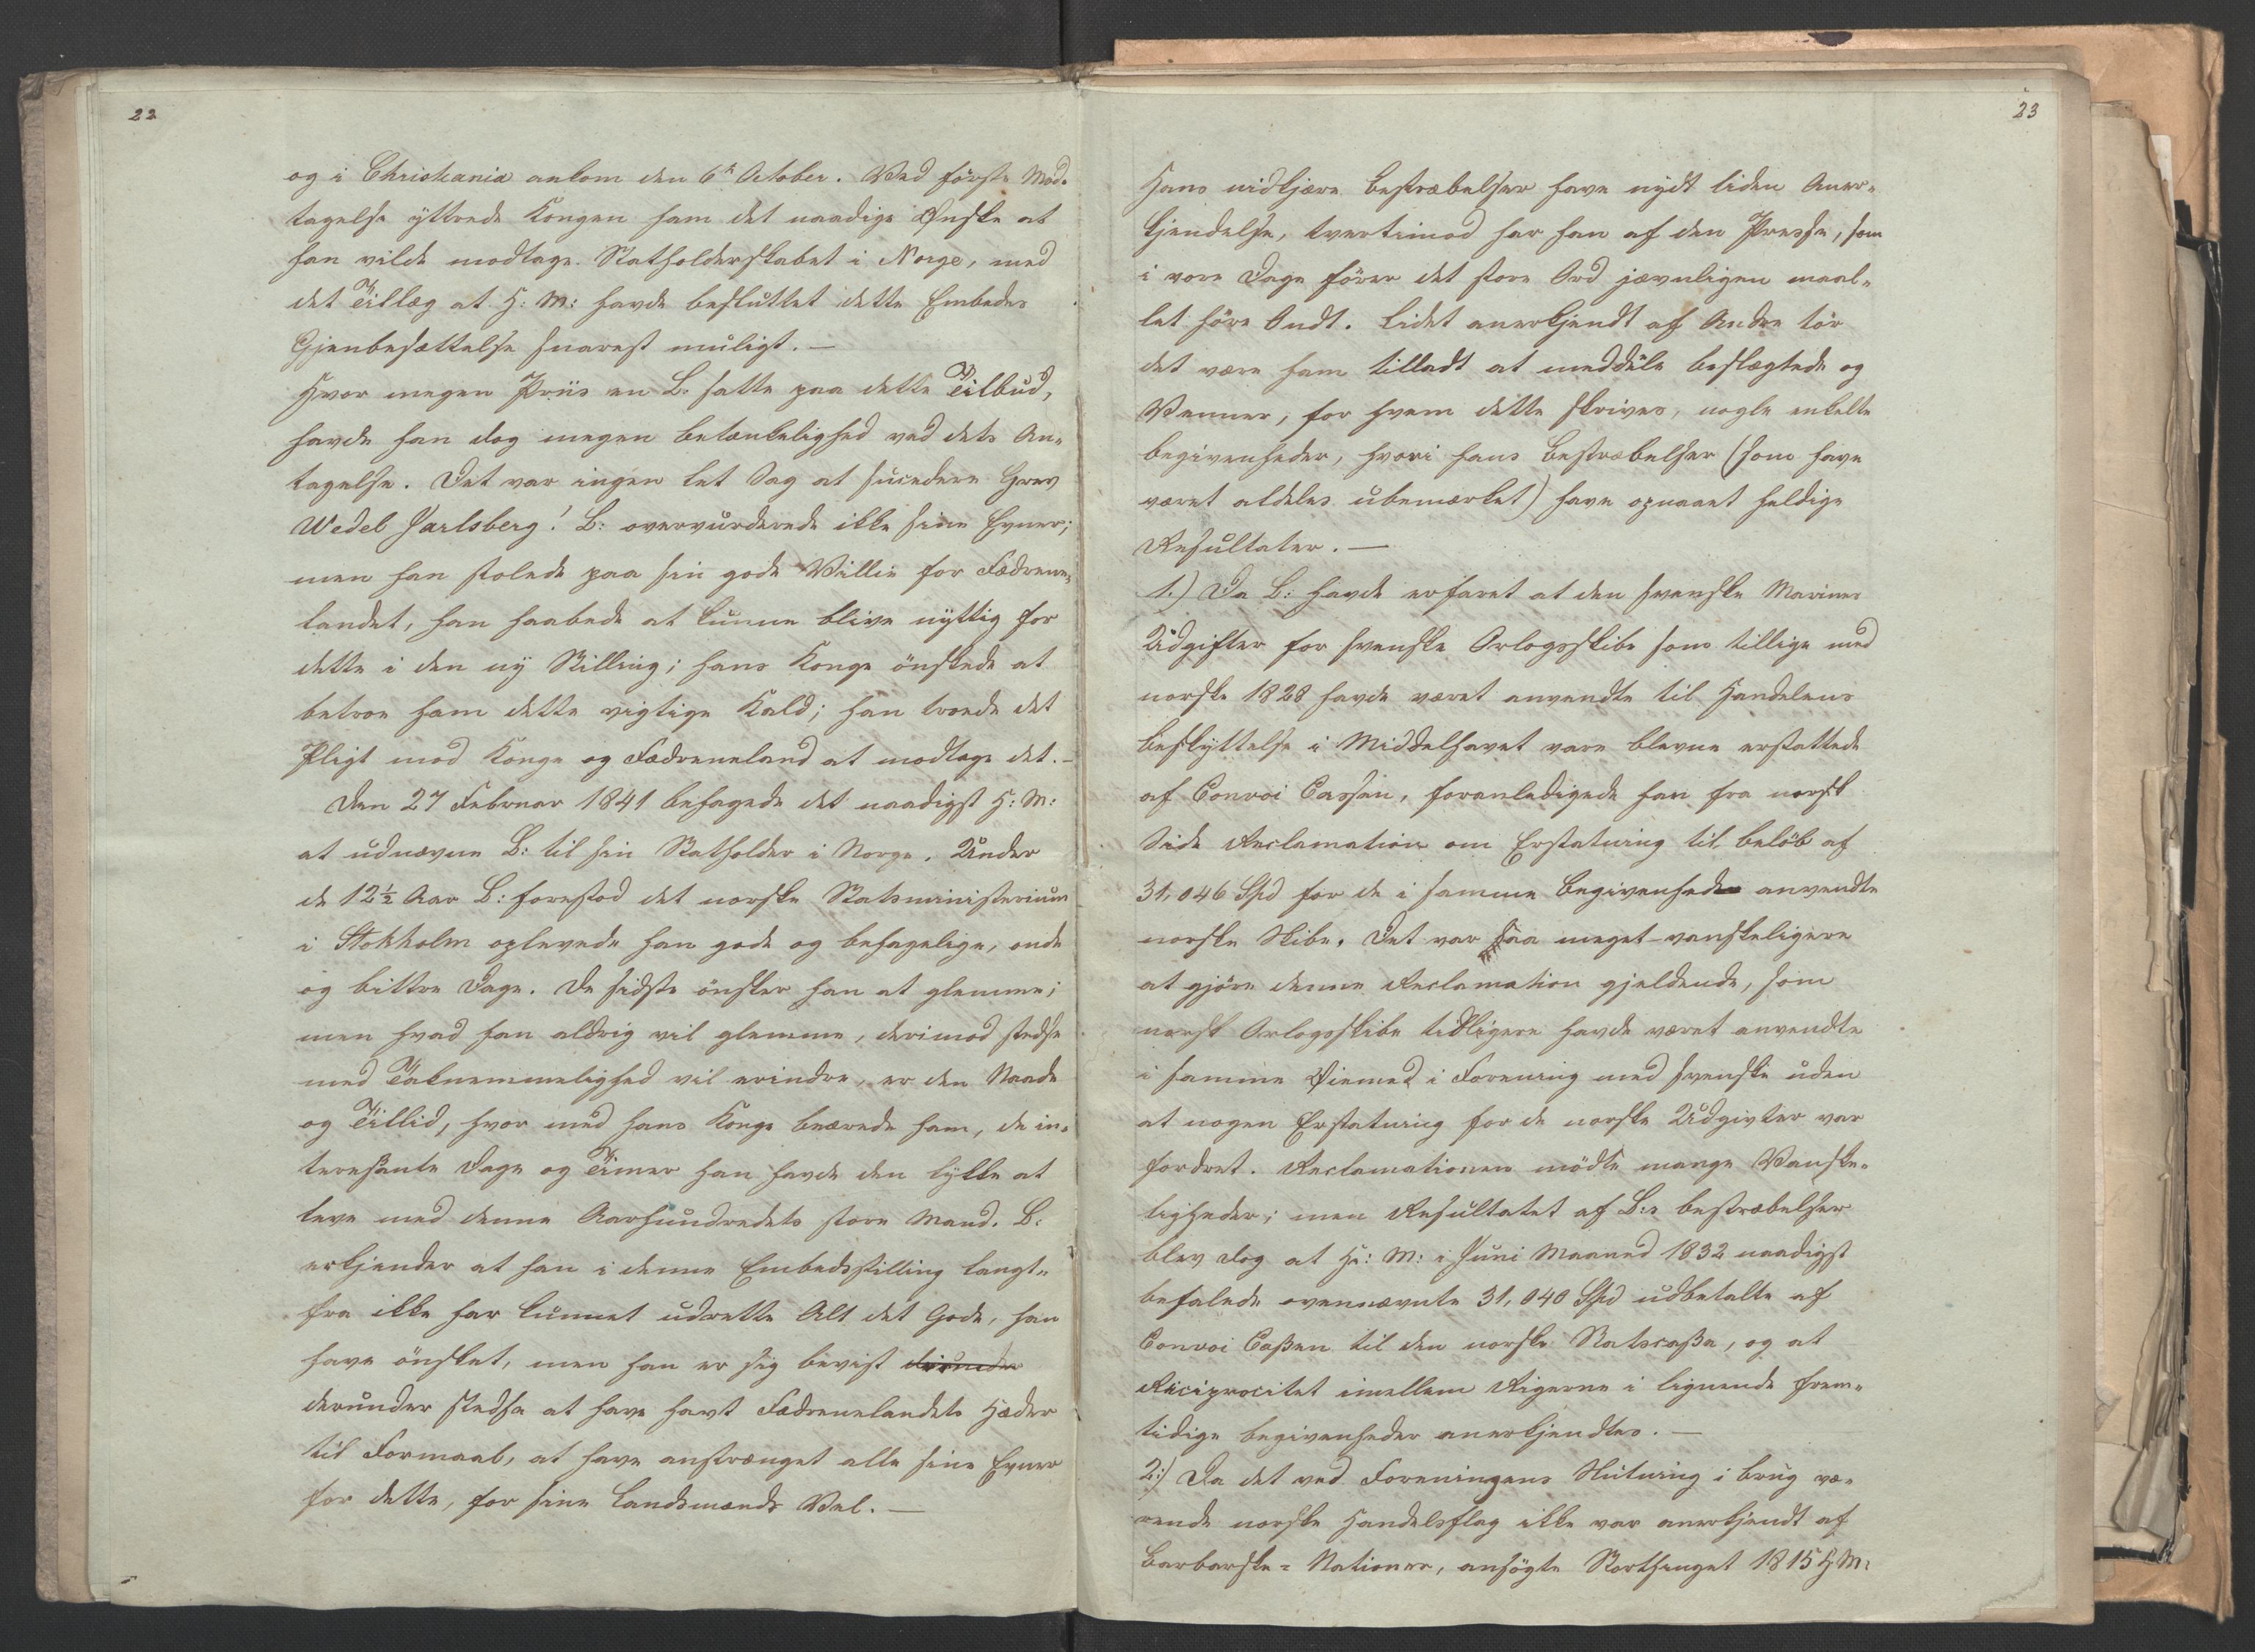 22
og i Christiania ankom den 6te October. Ved første Mod-
tagelse yttrede Kongen ham det naadige Ønske at
han vilde modtage Statholderskabet i Norge, med
det Tillæg at H: M: havde besluttet dette Embedes
Gjenbesættelse snarest muligt. —
Hvor megen Priis en L: satte paa dette Tilbud,
havde han dog megen betænkelighed ved dets An-
tagelse. Det var ingen let Sag at succedere Grev
Wedel Jarlsberg! L: overvurderede ikke sine Evner;
men han stolede paa sin gode Villie for Fædrene-
landet, han haabede at kunne blive nyttig for
dette i den ny Stilling; hans Konge ønskede at
betroe ham dette vigtige Kald; han troede det
Pligt mod Konge og Fædreneland at modtage det. –
Den 27 Februar 1841 behagede det naadigst H: M:
at udnævne L: til sin Statholder i Norge. Under
de 12½ Aar L: forestod det norske Statsministerium
i Stokholm oplevede han gode og behagelige, onde
og bittre Dage. De sidste ønsker han at glemme;
men hvad han aldrig vil glemme, derimod stedse
med Taknemmelighed vil erindre, er den Naade
og Tillid, hvor med hans Konge beærede ham, de in-
teressante Dage og Timer han havde den lykke at
leve med denne Aarhundredets store Mand. L:
erkjender at han i denne Embedsstilling langt-
fra ikke har kunnet udrette Alt det Gode, han
have ønsket, men han er sig bevist derunder
derunder stedse at have havt Fædrenelandets Hæder
til Formaal, at have anstrænget alle sine Evner
for dette, for sine Landsmænds Vel. —
23
Hans nidkjære bestræbelser have nydt liden Aner-
kjendelse, tvertimod har han af den Presse, som
i vore Dage fører det store Ord jævnligen maal-
let høre Ondt. Lidet anerkjendt af Andre tør
det være ham tilladt at meddele beslægtede og
Venner, for hvem dette skrives, nogle enkelte
begivenheder, hvori hans bestræbelser (som have
været aldeles ubemærket) have opnaaet heldige
Resultater. —
1.) Da L: havde erfaret at den svenske Marines
Udgifter for svenske Orlogsskibe som tillige med
norske 1828 havde været anvendte til Handelens
beskyttelse i Middelhavet vare blevne erstattede
af Convoi Cassen, foranledigede han fra norsk
Side Reclamation om Erstatning til beløb af
31,046 Spd for de i samme begivenhed anvendte
norske Skibe. Det var saa meget vanskeligere
at gjøre denne Reclamation gjeldende, som
norsk Orlogsskibe tidligere havde været anvendte
i samme Øiemed i Forening med svenske uden
at nogen Erstatning for de norske Udgivter var
fordret. Reclamationen mødte mange Vanske-
ligheder; men Resultatet af L:s bestræbelser
blev dog at H: M: i Juni Maaned 1832 naadigst
befalede ovennævnte 31,040 Spd udbetalte af
Convoi Cassen til den norske Statscassa, og at
Reciprocitet imellem Rigerne i lignende frem-
tidige begivenheder anerkjendtes. —
2:) Da det ved Foreningens Slutning i brug væ-
rende norske Handelsflag ikke var anerkjendt af
Barbarske-Nationer, ansøgte Storthinget 1815 H M: